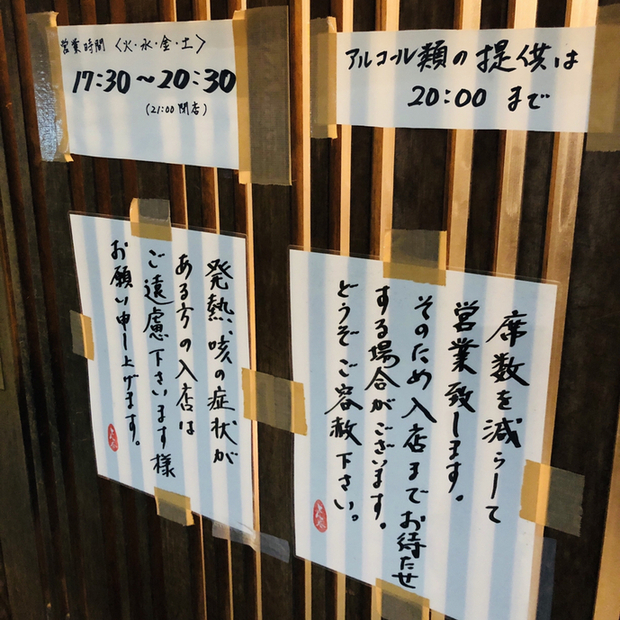 営業時間〈火・水・金・土〉
17:30〜20:30
(21:00閉店)
アルコール類の提供は
20:00まで
発熱、咳の症状が
ある方の入店は
ご遠慮下さいます様
お願い申し上げます。
席数を減らして
営業致します。
そのため入店までお待たせ
する場合がございます。
どうぞご容赦下さい。